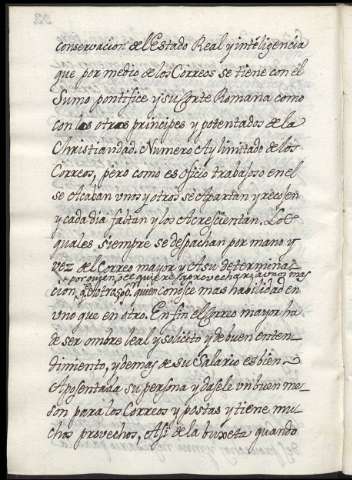 conservacion del Estado Real y inteligencia
que por medio de los Correos se tiene con él
Sumo pontifice y su Corte Romana como
con los otros principes y potentados de la
Christiandad. Numero Ay limitado de los
Correos, pero como es oficio trabajoso en el
se Acaban unos y otros se Apartan y recisen
y cada dia faltan y los Acrescientan. Los
quales siempre se despachan por mano y
vez del Correo mayor y A su determina
cion, o otras por quien conosce mas habilidad en
uno que en otro. En fin el Correo mayor ha
de ser ombre leal y solicito y de buen enten
dimiento, y demas de su Salario es bien
Aposentada su persona y dasele un buen me
son para los Correos y postas y tiene mu
chos provechos, Asi de la buxeta quando